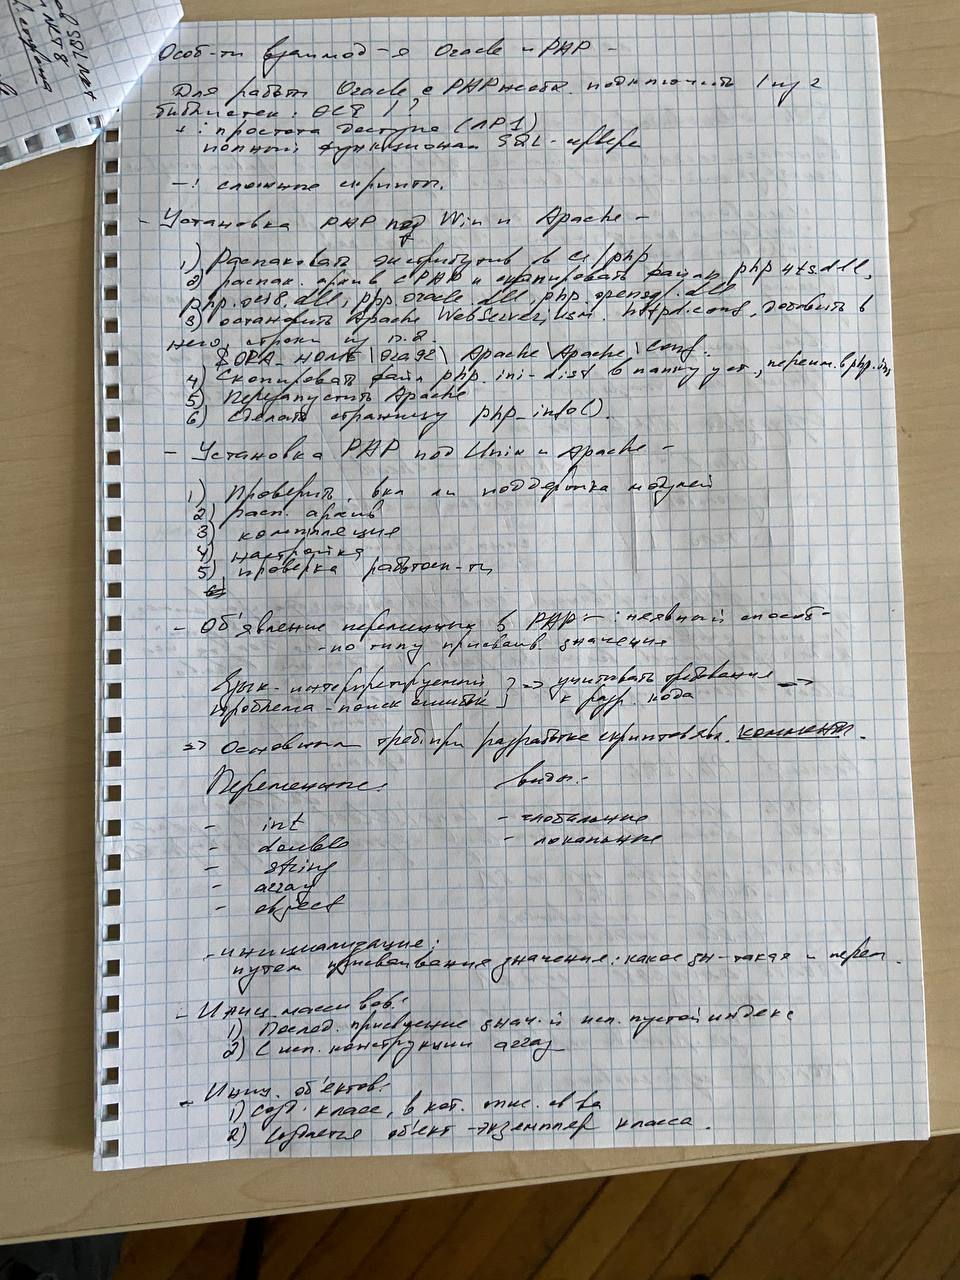 SQL Net
Особ-ти взаимод-я Oracle и PHP -
Для работы Oracle с PHP необх. подключить 1 из 2
библиотек: OCI !?
+ : простота доступа (API)
полный функционал SQL-сервера
- : сложные скрипты.
- Установка PHP под Win и Apache -
1) Распаковать дистрибутив в c:/php
2) распак. архив с PHP и скопировать файлы php4ts.dll,
php.oci8.dll, php.oracle.dll, php.openssl.dll
3) остановить Apache WebServer, изм. httpd.conf, добавить в
него строки из п.2
$ORA_HOME\Ora92\Apache\Apache\conf.
4) Скопировать файл php.ini-dist в папку уст., переим. в php.ini
5) Перезапустить Apache
6) Сделать страницу php_info().
- Установка PHP под Unix и Apache -
1) Проверить, вкл ли поддержка модулей
2) расп. архив
3) компиляция
4) настройка
5) проверка работосп-ти
- Об'явление переменных в PHP - : неявный способ -
- по типу присваив. значения
Язык - интерпретируемый } => учитывать требования =>
проблема - поиск ошибок к разр. кода
=> Основным треб. при разработке скриптов явл. комменты.
Переменные: виды:
- int - глобальные
- double - локальные
- string
- array
- object
- инициализация:
путем присваивания значения: какое зн - такая и перем.
- Иниц. массивов:
1) Послед. присвоение знач. и исп. пустой индекс
2) С исп. конструкции array
- Иниц. об'ектов:
1) созд. класс, в кот. опис. св-ва
2) создается об'ект - экземпляр класса.